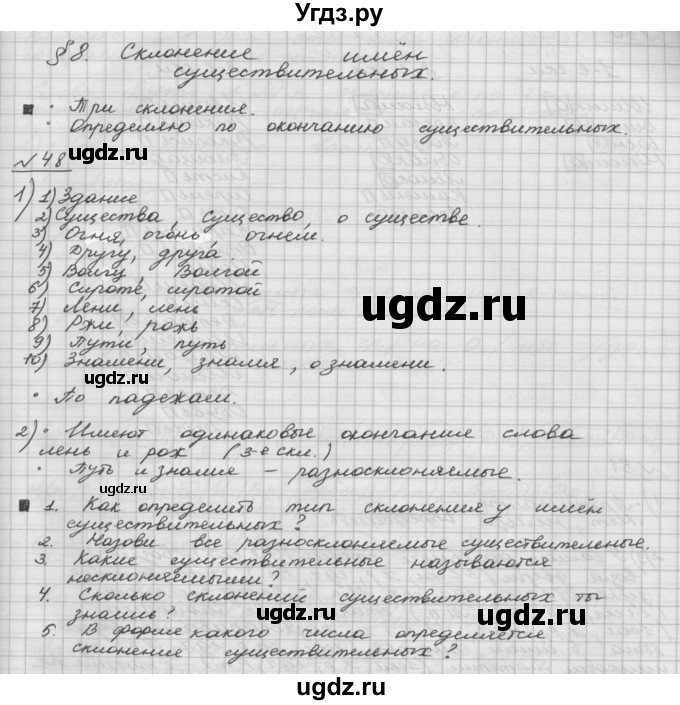 Угдз.ру
§ 8. Склонение имён
существительных.
• Три склонения.
• Определяю по окончанию существительных.
ugdz.ru
№48
1) 1) Здание
2) Существа, существо, о существе.
3) Огня, огонь, огнем.
4) Другу, друга.
5) Волгу, Волгой
6) Сироте, сиротой
ugdz.ru
7) Лени, лень
8) Ржи, рожь
9) Пути, путь
10) Знамени, знамя, о знамени.
ugdz.ru
• По падежам.
2) • Имеют одинаковые окончания слова
лень и рож (3-е скл.)
• Путь и знамя – разносклоняемые.
ugdz.ru
1. Как определить тип склонения у имён
существительных?
2. Назови все разносклоняемые существительные.
3. Какие существительные называются
несклоняемыми?
4. Сколько склонений существительных ты
знаешь?
ugdz.ru
5. В форме какого числа определяется
склонение существительных?
ugdz.ru
ugdz.ru